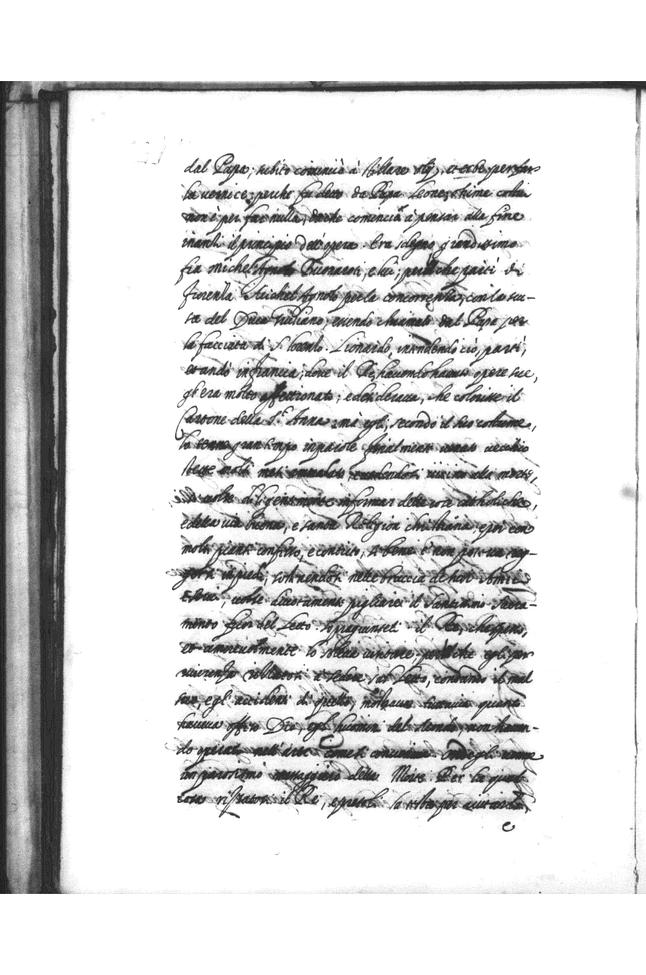 dal Papa, subito cominciò à stillare olij, et erbe, per far
la vernice; perche fu detto da Papa Leone, ohime costui
non è per far nulla, da che comincia à pensar alla fine
inanti il principio dell'opera. Era sdegno grandissimo
fra Michel Agnolo Buonaroti, e lui; perilche parti di
Fiorenza Michel Agnolo per la concorrenza, con la scu-
sa del Duca Giuliano, essendo chiamato dal Papa per
la facciata di S. Lorenzo. Lionardo, intendendo ciò, parti,
et andò in francia; dove il Re, havendo havuto opere sue,
gli era molto affettionato; e desiderava, che colorisse il
Cartone della S.ta Anna; mà egli, secondo il suo costume,
lo tenne gran tempo in parole finalmente venuto vecchio
stette molti mesi ammalato, e vedendosi vicino alla morte,
si volse diligentemente informar delle cose catholiche,
e della via buona, e santa Religion christiana, e poi con
molti pianti confesso, e contrito, se bene e' non poteva reg-
gersi in piedi, sostenendosi nelle braccia de suoi Amici
e servi, volse divotamente pigliare il Santissimo Sacra-
mento fuor del Letto. Sopragiunseli il Re, che spesso,
et amorevolmente lo soleva visitare; perilche egli per
riverenza rizzatosi à sedere sul Letto, contando il mal
suo, e gli accidenti di quello, mostrava tuttavia quanto
haveva offeso Dio, e gli huomini del mondo, non haven-
do operato nell'arte come si conveniva. Onde gli venne
un parosismo messaggiero della Morte. Per la qual
cosa rizzatosi il Re, e presoli la testa per aiutarlo,
e